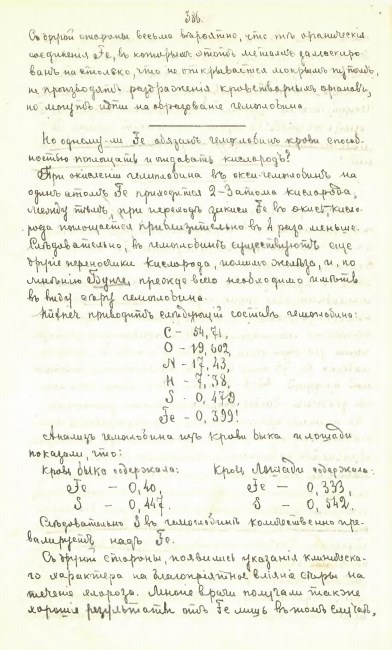 386.
Съ другой стороны весьма вѣроятно, что тѣ органическія
соединенія Fe, въ которыхъ этотъ металлъ замаскиро-
ванъ настолько, что не открывается мокрымъ путемъ,
не производятъ раздраженія кроветворныхъ органовъ,
но могутъ идти на образованіе гемоглобина.
Но одному-ли Fe обязанъ гемоглобинъ крови способ-
ностью поглощать и отдавать кислородъ?
При окисленіи гемоглобина въ окси-гемоглобинъ на
одинъ атомъ Fe приходится 2-3 атома кислорода,
между тѣмъ, при переходѣ закиси Fe въ окись кисло-
рода поглощается приблизительно въ 4 раза меньше.
Слѣдовательно, въ гемоглобинѣ существуютъ еще
другіе переносчики кислорода, помимо желѣза, и, по
мнѣнію Бунге, прежде всего необходимо имѣть
въ виду сѣру гемоглобина.
приводитъ слѣдующій составъ гемоглобина:
C - 54,71,
O - 19,602,
N - 17,43,
H - 7,38,
S - 0,479,
Fe - 0,399!
Анализъ гемоглобина изъ крови быка и лошади
показали, что:
Кровь быка содержала: Кровь лошади содержала:
Fe - 0,40, Fe - 0,333,
S - 0,447. S - 0,542.
Слѣдовательно S въ гемоглобинѣ количественно пре-
валируетъ надъ Fe.
Съ другой стороны, появились указанія клиническа-
го характера на благопріятное вліяніе сѣры на
теченіе хлороза. Многіе врачи получали также
хорошіе результаты отъ Fe лишь въ томъ случаѣ,